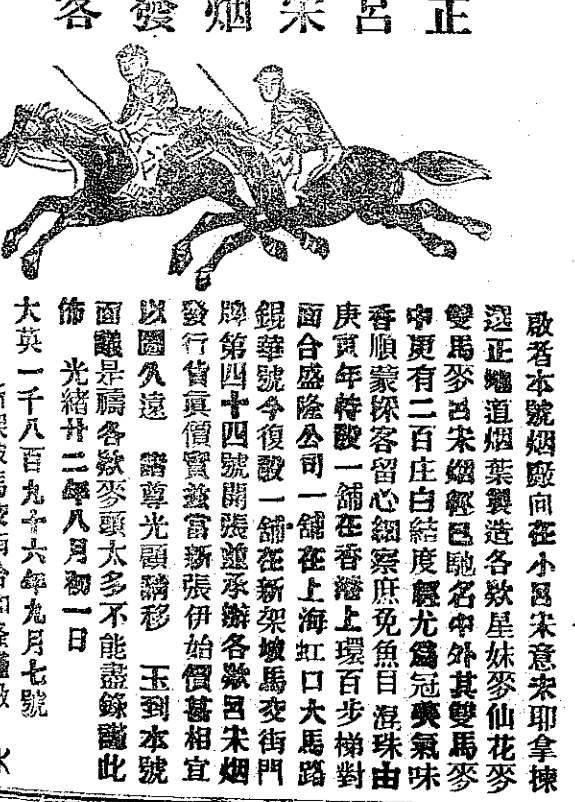 正呂宋烟發客
啟者本號烟廠向在小呂宋意來耶拿揀
選正地道烟葉製造各欵星妹麥仙花麥
雙馬麥呂宋烟經已馳名中外其雙馬麥
中更有二百庄白結度輕尤為冠矣氣味
香順蒙採客留心細察庶免魚目混珠由
庚寅年特設一舖在香港上環百步梯對
面合盛隆公司一舖在上海虹口大馬路
錦華號今復設一舖在新架坡馬交街門
牌第四十四號開張並承辦各欵呂宋烟
發行貨真價實茲當新張伊始價甚相宜
以圖久遠 諸尊光顧請移 玉到本號
面議是禱各欵麥頭太多不能盡錄謹此
佈 光緒廿二年八月初一日
大英一千八百九十六年九月七號